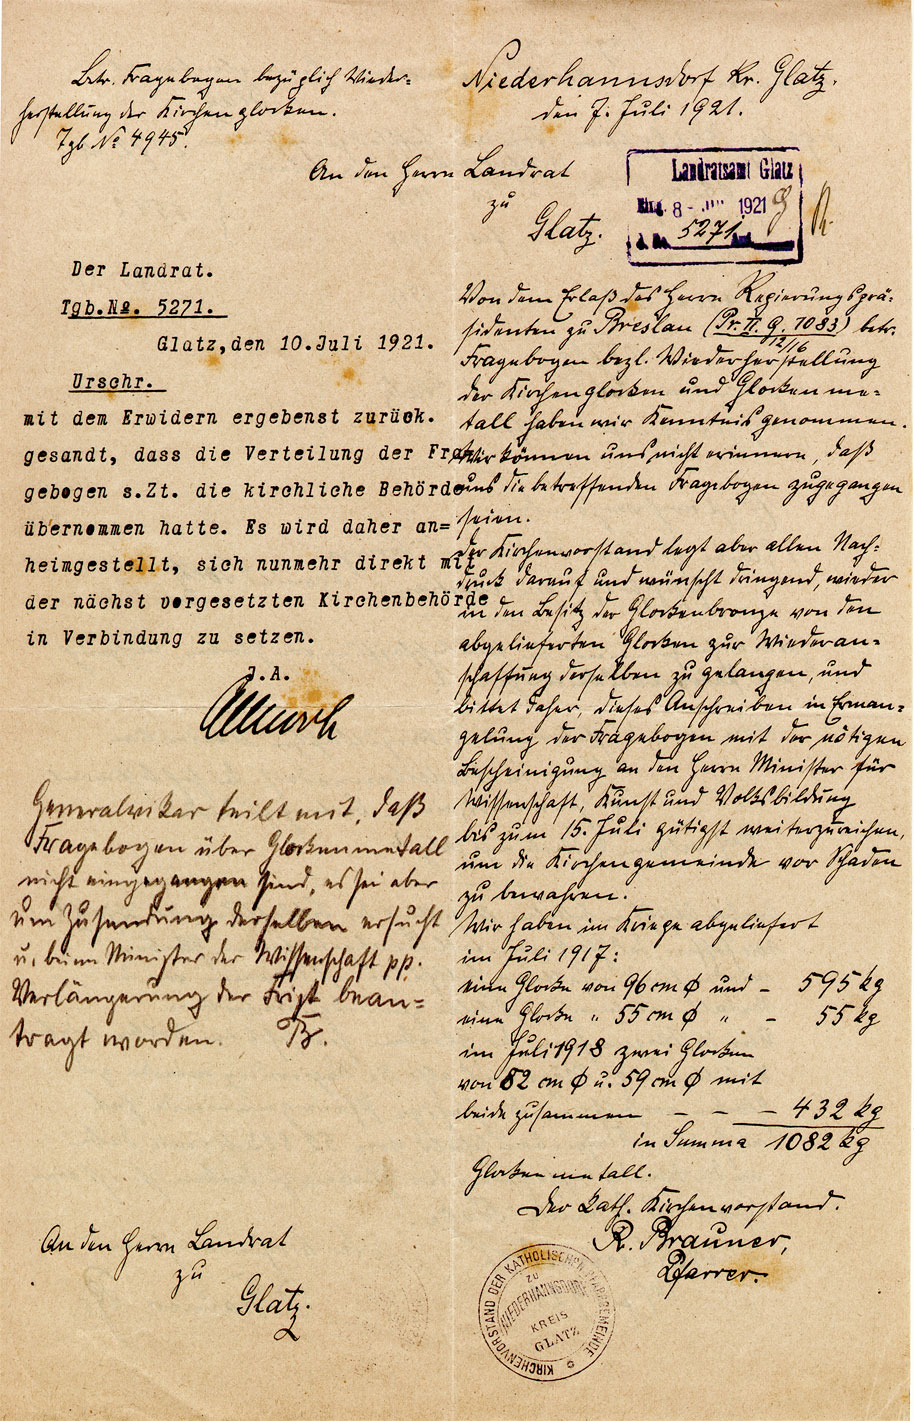 Betr. Fragebogen bezüglich Wieder-
herstellung der Kirchenglocken.
Tgb. № 4945.
Niederhannsdorf Kr. Glatz,
den 7. Juli 1921.
An den Herrn Landrat
zu
Glatz.
Landratsamt Glatz
Eing. 8 - 1921
5271
Von dem Erlaß des Herrn Regierungsprä-
sidenten zu Breslau (Pr. II. G. 7083) betr.
12/16
Fragebogen bezl. Wiederherstellung
der Kirchenglocken und Glockenme-
tall haben wir Kenntnis genommen.
Wir können uns nicht erinnern, daß
uns die betreffenden Fragebogen zugegangen
seien.
Der Kirchenvorstand legt aber allen Nach-
druck darauf und wünscht dringend, wieder
in den Besitz der Glockenbronze von den
abgelieferten Glocken zur Wiederan-
schaffung derselben zu gelangen, und
bittet daher, dieses Anschreiben in Erman-
gelung der Fragebogen mit der nötigen
Bescheinigung an den Herrn Minister für
Wissenschaft, Kunst und Volksbildung
bis zum 15. Juli gütigst weiterzureichen,
um die Kirchengemeinde vor Schaden
zu bewahren.
Wir haben im Kriege abgeliefert
im Juli 1917:
eine Glocke von 96 cm ϕ und - 595 kg
eine Glocke " 55 cm ϕ " - 55 kg
im Juli 1918 zwei Glocken
von 82 cm ϕ u. 59 cm ϕ mit
beide zusammen - - - 432 kg
in Summa 1082 kg
Glockenmetall.
Der kath. Kirchenvorstand.
R. Brauner,
Pfarrer.
KIRCHENVORSTAND DER KATHOLISCHEN PFARRGEMEINDE
ZU
NIEDERHANNSDORF
KREIS
GLATZ
Der Landrat.
Tgb.№. 5271.
Glatz,den 10.Juli 1921.
Urschr.
mit dem Erwidern ergebenst zurück.
gesandt, dass die Verteilung der Fra
gebogen s.Zt. die kirchliche Behörde
übernommen hatte. Es wird daher an=
heimgestellt, sich nunmehr direkt mit
der nächst vorgesetzten Kirchenbehörde
in Verbindung zu setzen.
J.A.
Generalvikar teilt mit, daß
Fragebogen über Glockenmetall
nicht eingegangen sind, es sei aber
um Zusendung derselben ersucht
u. beim Minister der Wissenschaft pp.
Verlängerung der Frist bean-
tragt worden. B.
An den Herrn Landrat
zu
Glatz.